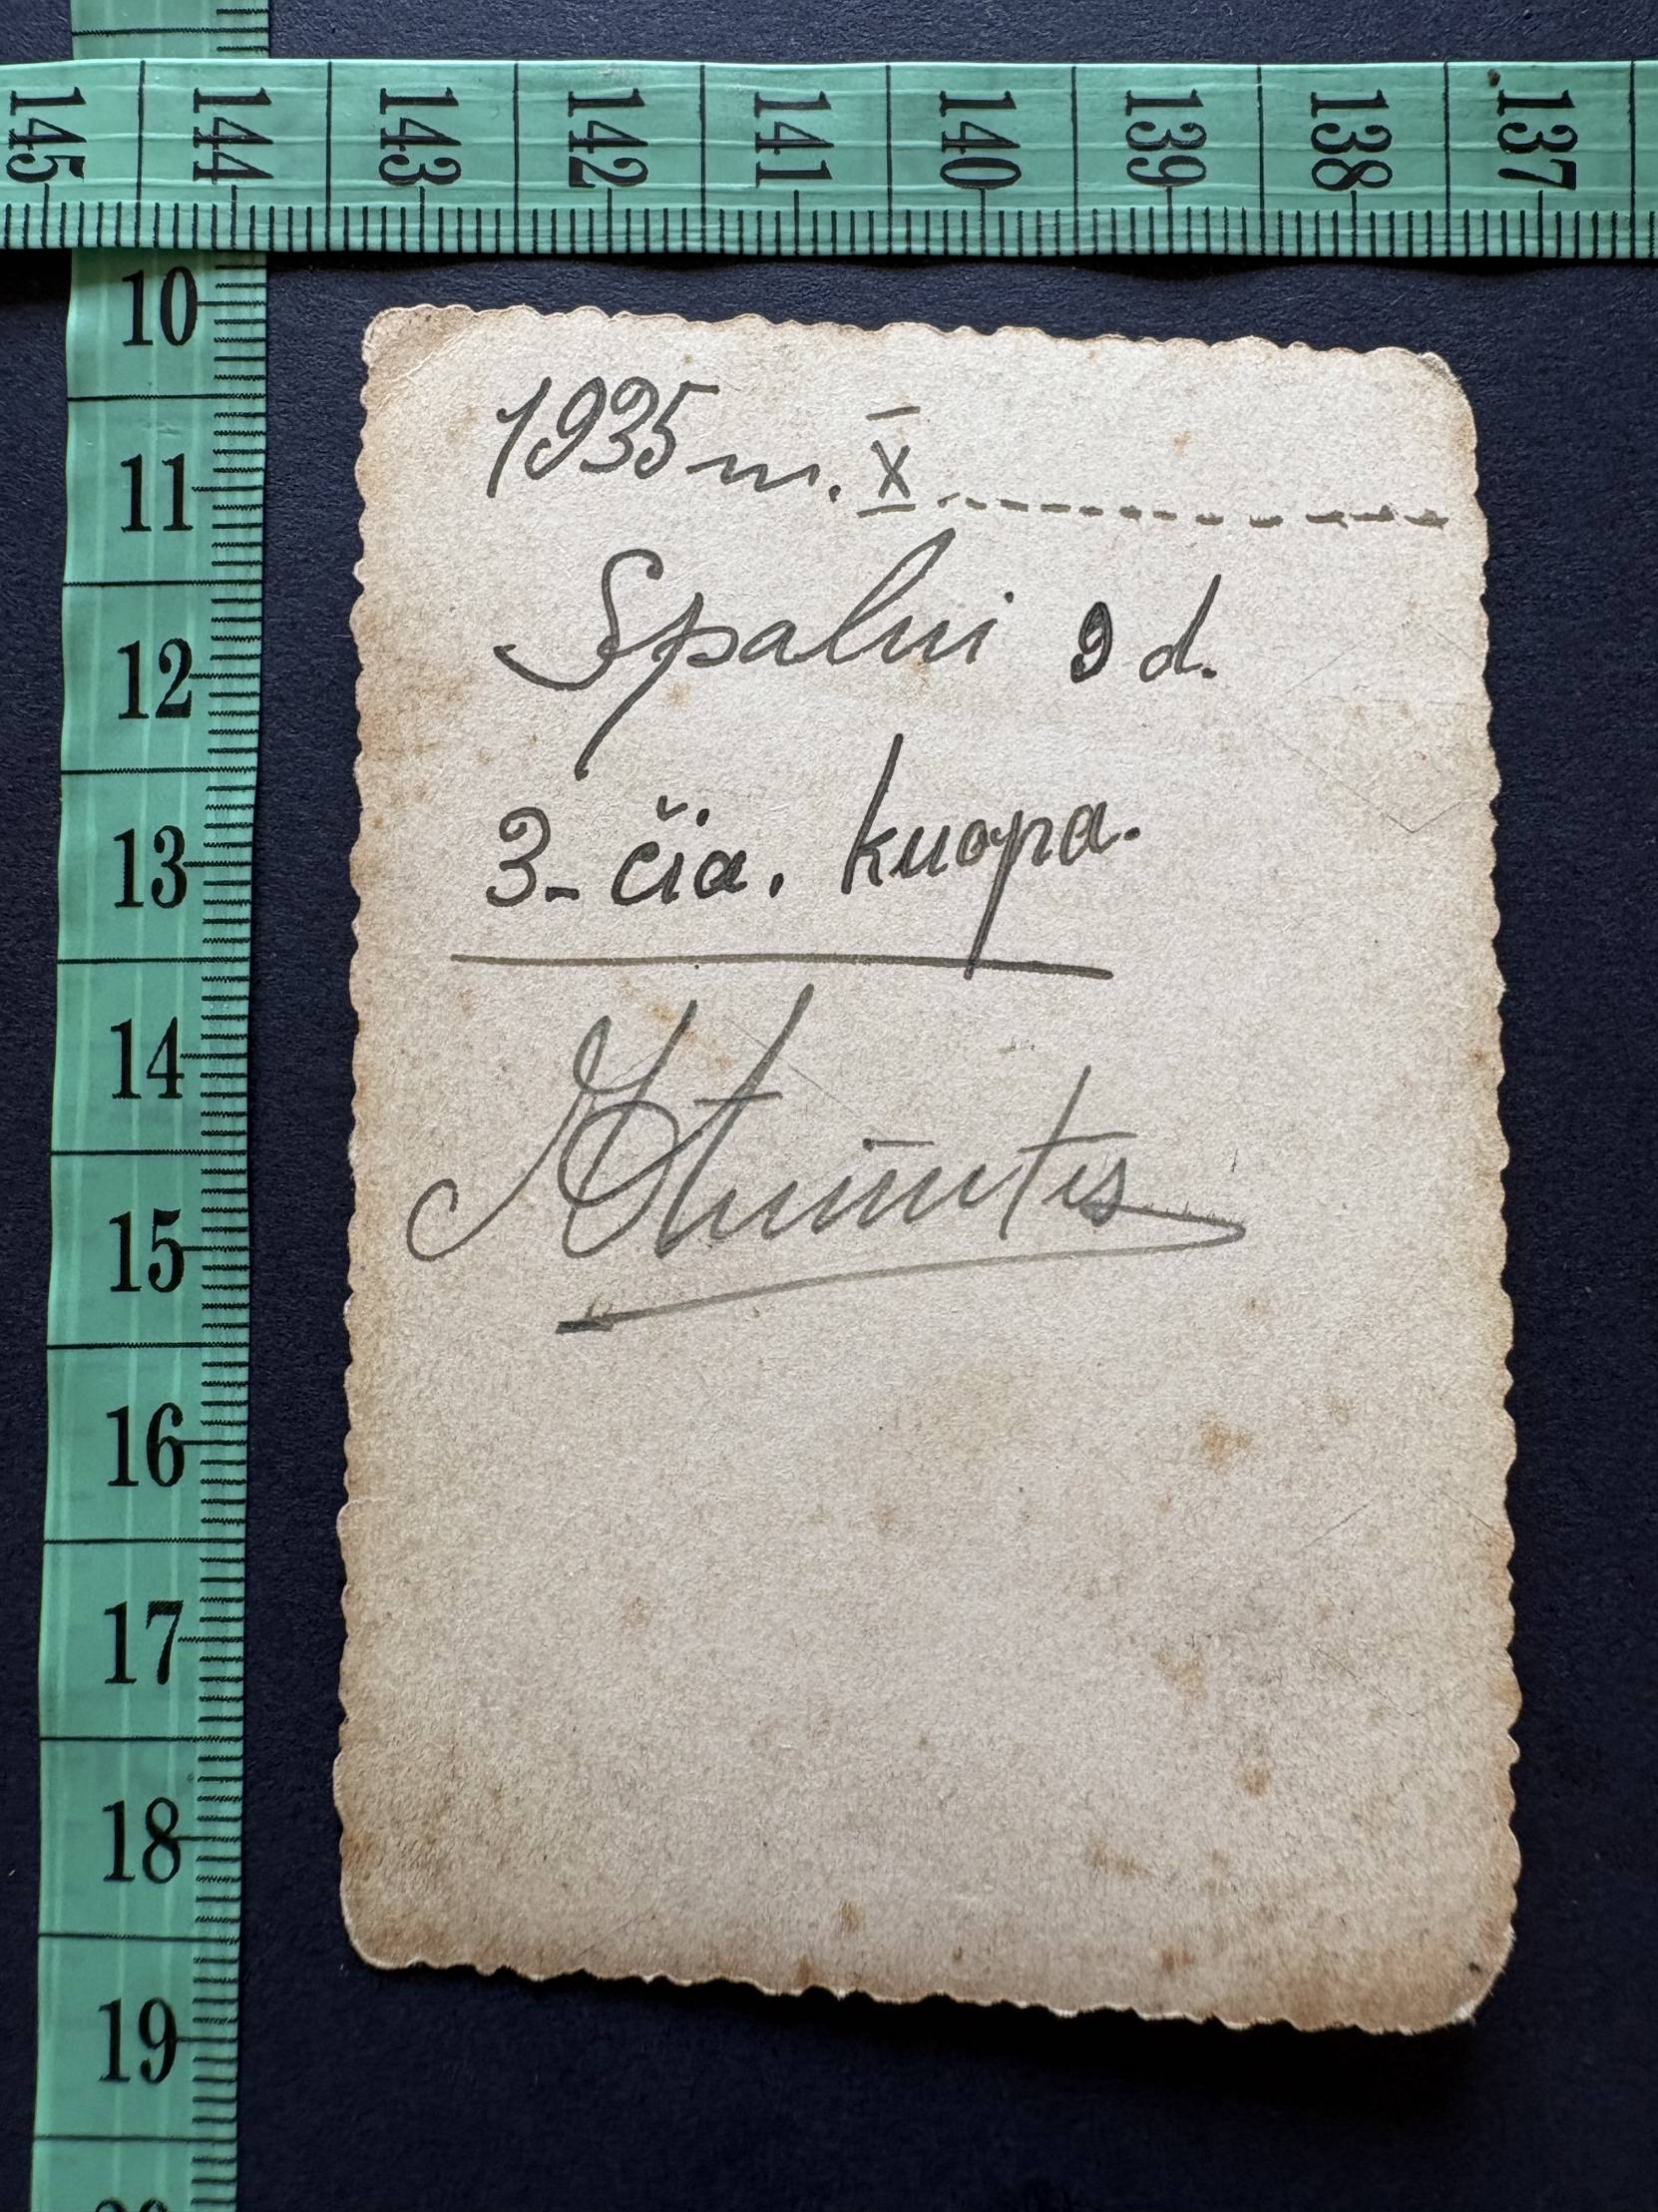 145 144 143 142 141 140 139 138 137
10
11
12
13
14
15
16
17
18
19
1935 m. X.
Spalui 9 d.
3-čia. kuopa.